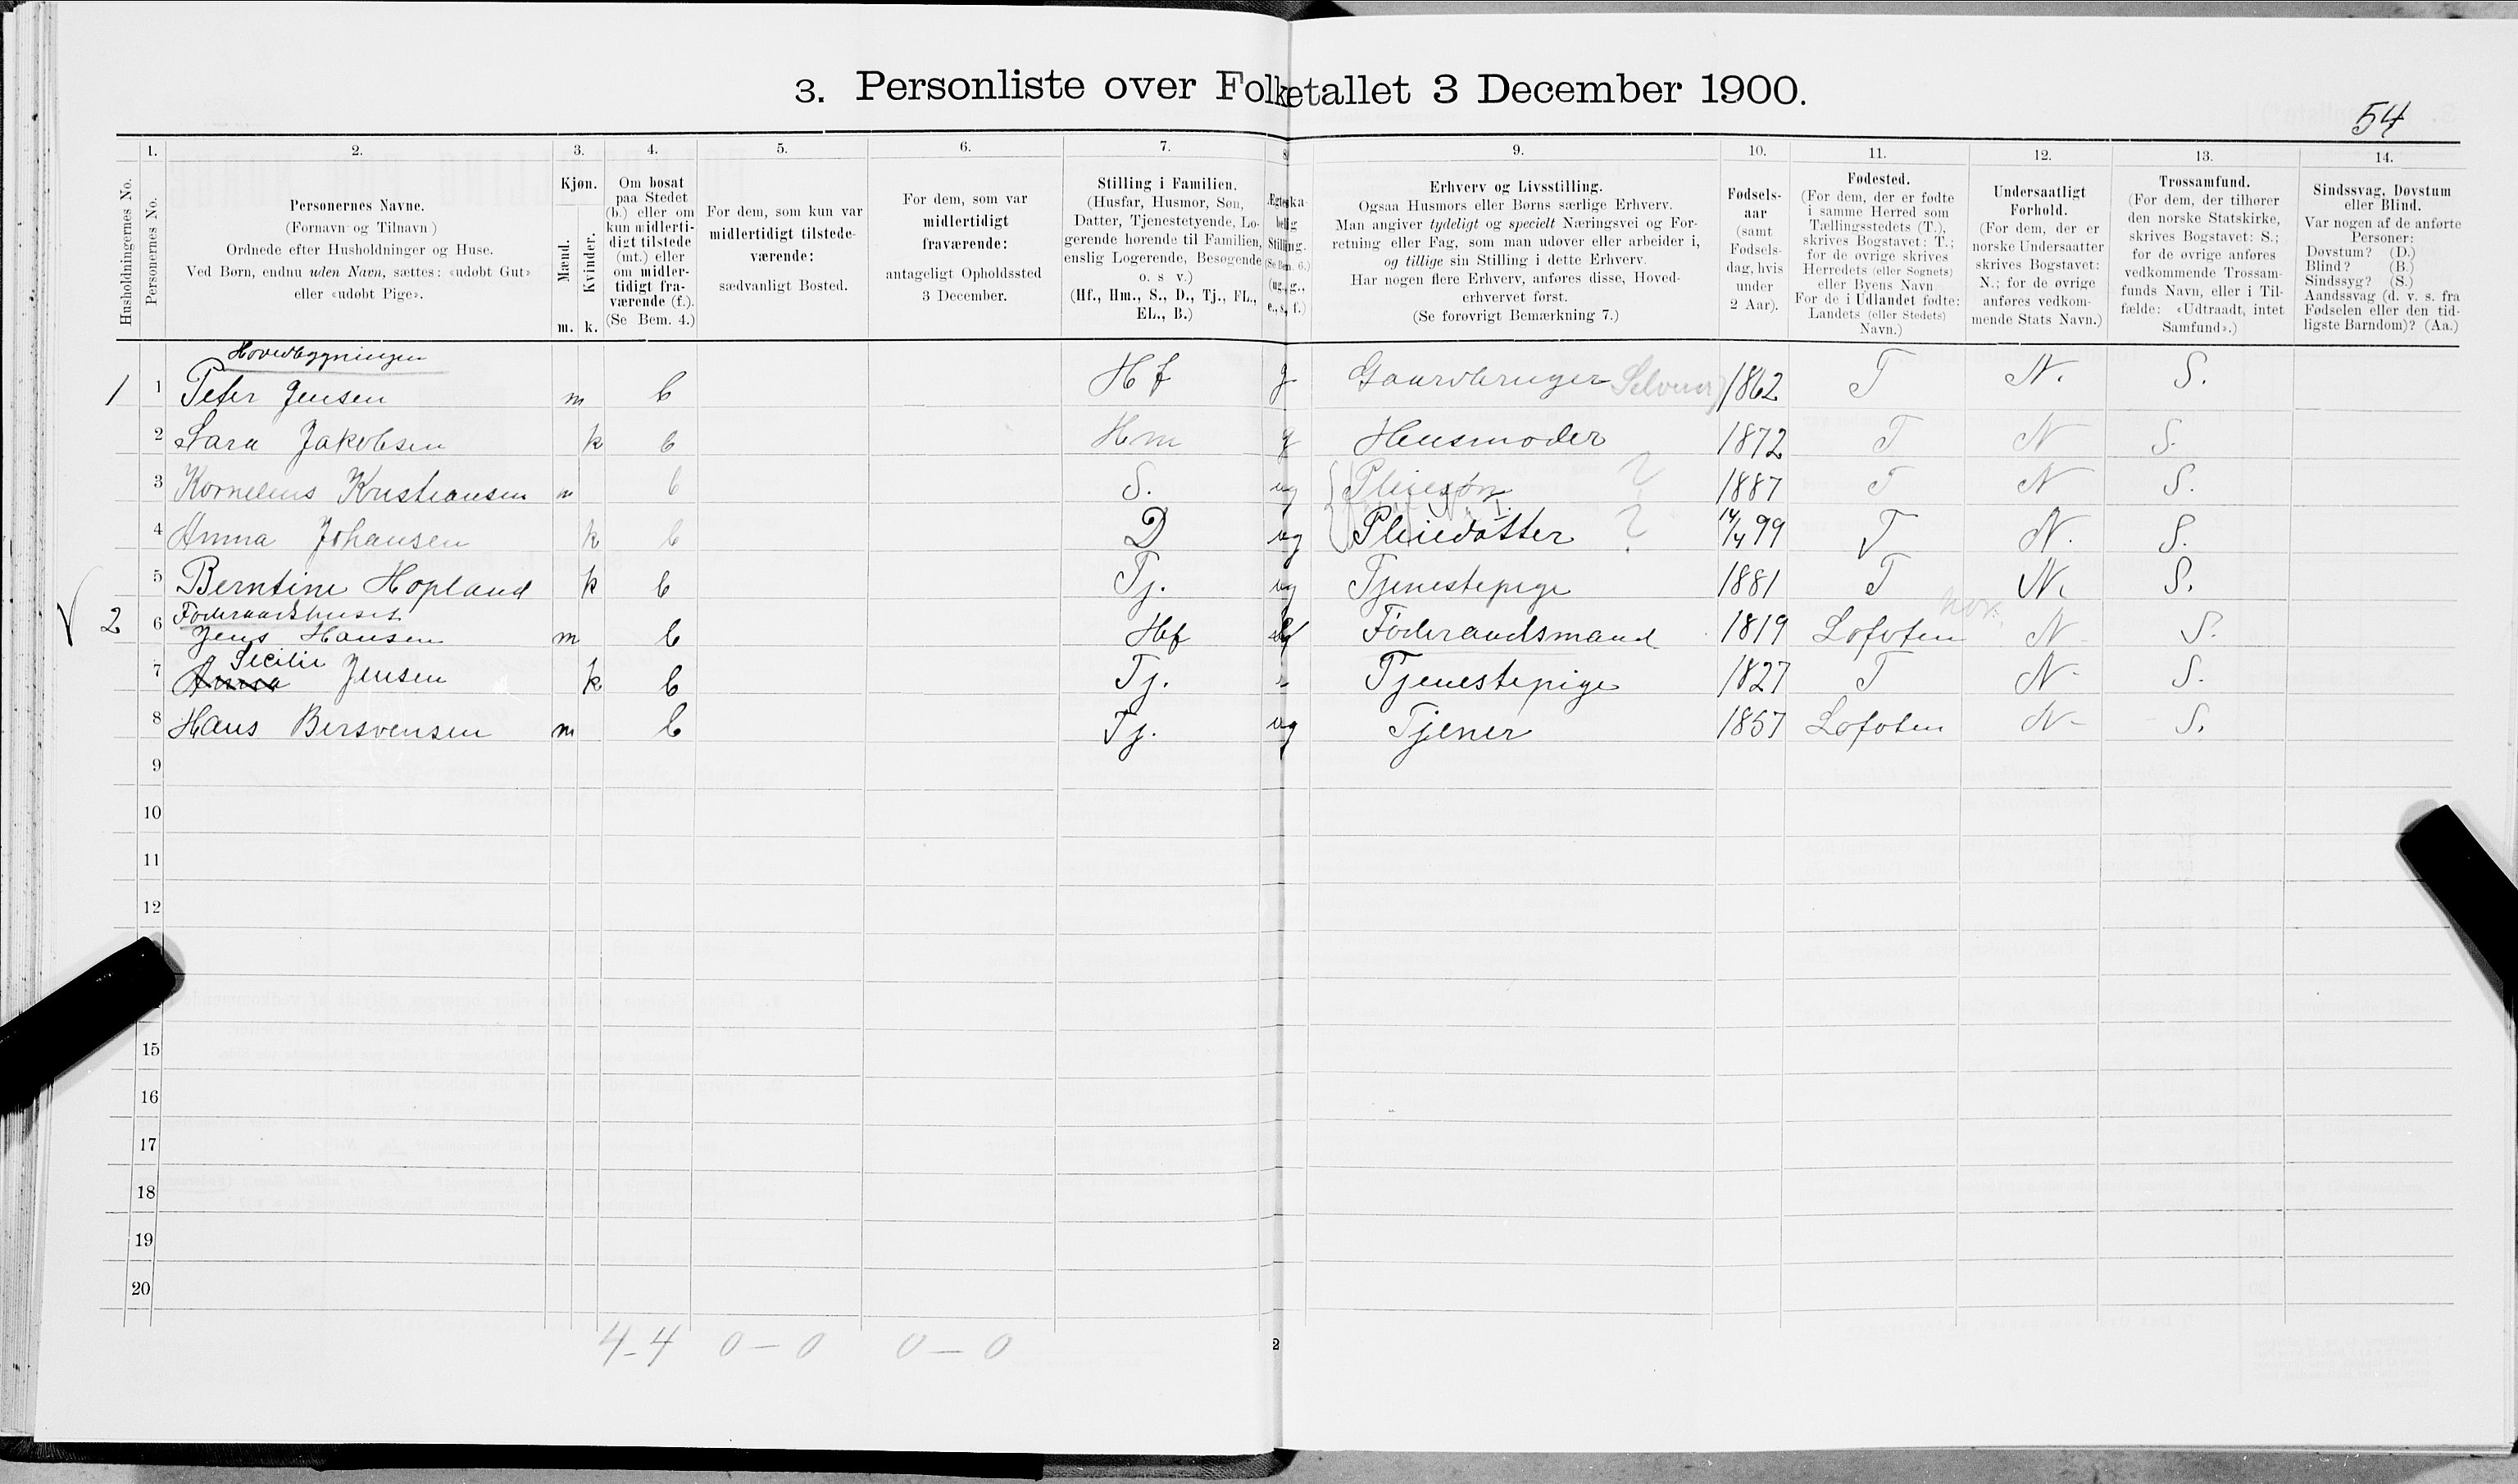 3. Personliste over Folketallet 3 December 1900.
54
1. 2. 3. 4. 5. 6. 7. 8 9. 10. 11. 12. 13. 14.
Husholdningernes No.
Personernes No.
Personernes Navne.
(Fornavn og Tilnavn)
Ordnede efter Husholdninger og Huse.
Ved Børn, endnu uden Navn, sættes: «udøbt Gut»
eller «udøbt Pige».
Kjøn.
Mænd.
Kvinder.
m. k.
Om bosat
paa Stedet
(b.) eller om
kun midlerti-
digt tilstede
(mt.) eller
om midler-
tidigt fra-
værende (f.).
(Se Bem. 4.)
For dem, som kun var
midlertidigt tilstede-
værende:
sædvanligt Bosted.
For dem, som var
midlertidigt
fraværende:
antageligt Opholdssted
3 December.
Stilling i Familien.
(Husfar, Husmor, Søn,
Datter, Tjenestetyende, Lo-
gerende hørende til Familien,
enslig Logerende, Besøgende
o. s v.)
(Hf., Hm., S., D., Tj., FL.,
EL., B.)
Egteska-
belig
Stilling.
(Se Bem. 6.)
(ug., g.,
e., s., f.)
Erhverv og Livsstilling.
Ogsaa Husmors eller Børns særlige Erhverv.
Man angiver tydeligt og specielt Næringsvei og For-
retning eller Fag, som man udøver eller arbeider i,
og tillige sin Stilling i dette Erhverv.
Har nogen flere Erhverv, anføres disse, Hoved-
erhvervet først.
(Se forøvrigt Bemærkning 7.)
Fødsels-
aar
(samt
Fødsels-
dag, hvis
under
2 Aar).
Fødested.
(For dem, der er fødte
i samme Herred som
Tællingsstedets (T.),
skrives Bogstavet: T.;
for de øvrige skrives
Herredets (eller Sognets)
eller Byens Navn
For de i Udlandet fødte:
Landets (eller Stedets)
Navn.)
Undersaatligt
Forhold.
(For dem, der er
norske Undersaatter
skrives Bogstavet:
N.; for de øvrige
anføres vedkom-
mende Stats Navn.)
Trossamfund.
(For dem, der tilhører
den norske Statskirke,
skrives Bogstavet: S.;
for de øvrige anføres
vedkommende Trossam-
funds Navn, eller i Til-
fælde: «Udtraadt, intet
Samfund».)
Sindssvag, Døvstum
eller Blind.
Var nogen af de anførte
Personer:
Døvstum? (D.)
Blind? (B.)
Sindssyg? (S.)
Aandssvag (d. v. s. fra
Fødselen eller den tid-
ligste Barndom)? (Aa.)
Hovedbygningen
1 1 Peter Jensen m b Hf g Gaardbruger Selveier 1862 T N. S.
2 Sara Jakobsen k b Hm g Husmoder 1872 T N S.
3 Kornelius Kristiansen m b S. ug Pleiesøn ? 1887 T N S.
4 Anna Johansen k b D ug Pleiedatter ? 14/4 99 T N. S.
5 Berntine Hopland k b Tj. ug Tjenestepige 1881 T N. S.
Føderaadshuset
V 2 6 Jens Hansen m b Hf Føderaadsmand 1819 Lofoten N S.
Secilie
7 Anna Jensen k b Tj. Tjenestepige 1827 T N- S.
8 Hans Bersvensen m b Tj. ug Tjener 1857 Lofoten N- S.
9
10
11
12
15
16
17
18
19
20
4-4 0-0 0-0
2